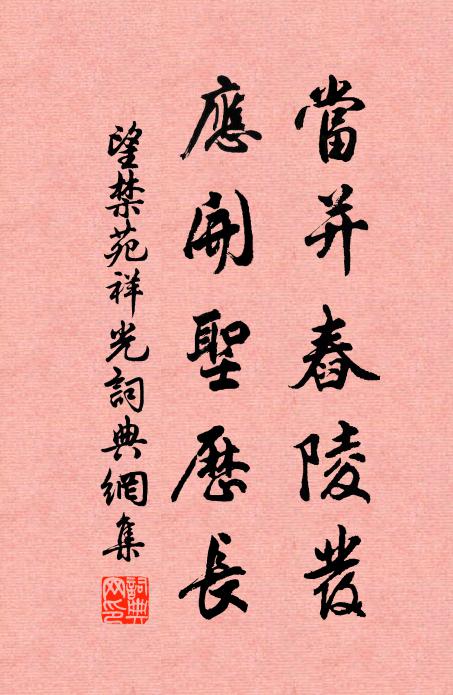 當并舂陵發
應開聖歷長
望禁苑祥光詞典網集
詞典网印